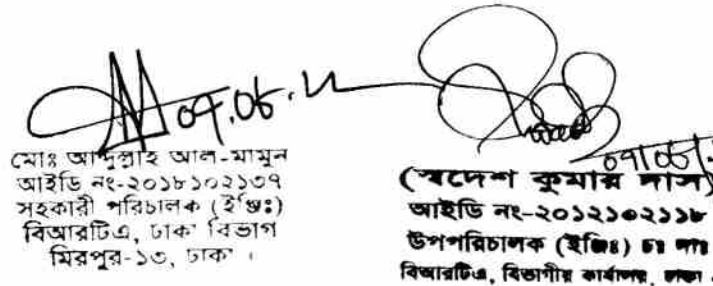 ০৭.০৮.২২
মোঃ আব্দুল্লাহ আল-মামুন
আইডি নং-২০১৮১০২১৩৭
সহকারী পরিচালক (ইঞ্জিঃ)
বিআরটিএ, ঢাকা বিভাগ
মিরপুর-১৩, ঢাকা ।
(স্বদেশ কুমার দাস)
আইডি নং-২০১২১০২১১৮
উপপরিচালক (ইঞ্জিঃ) চঃ দাঃ
বিআরটিএ, বিভাগীয় কার্যালয়, ঢাকা ।